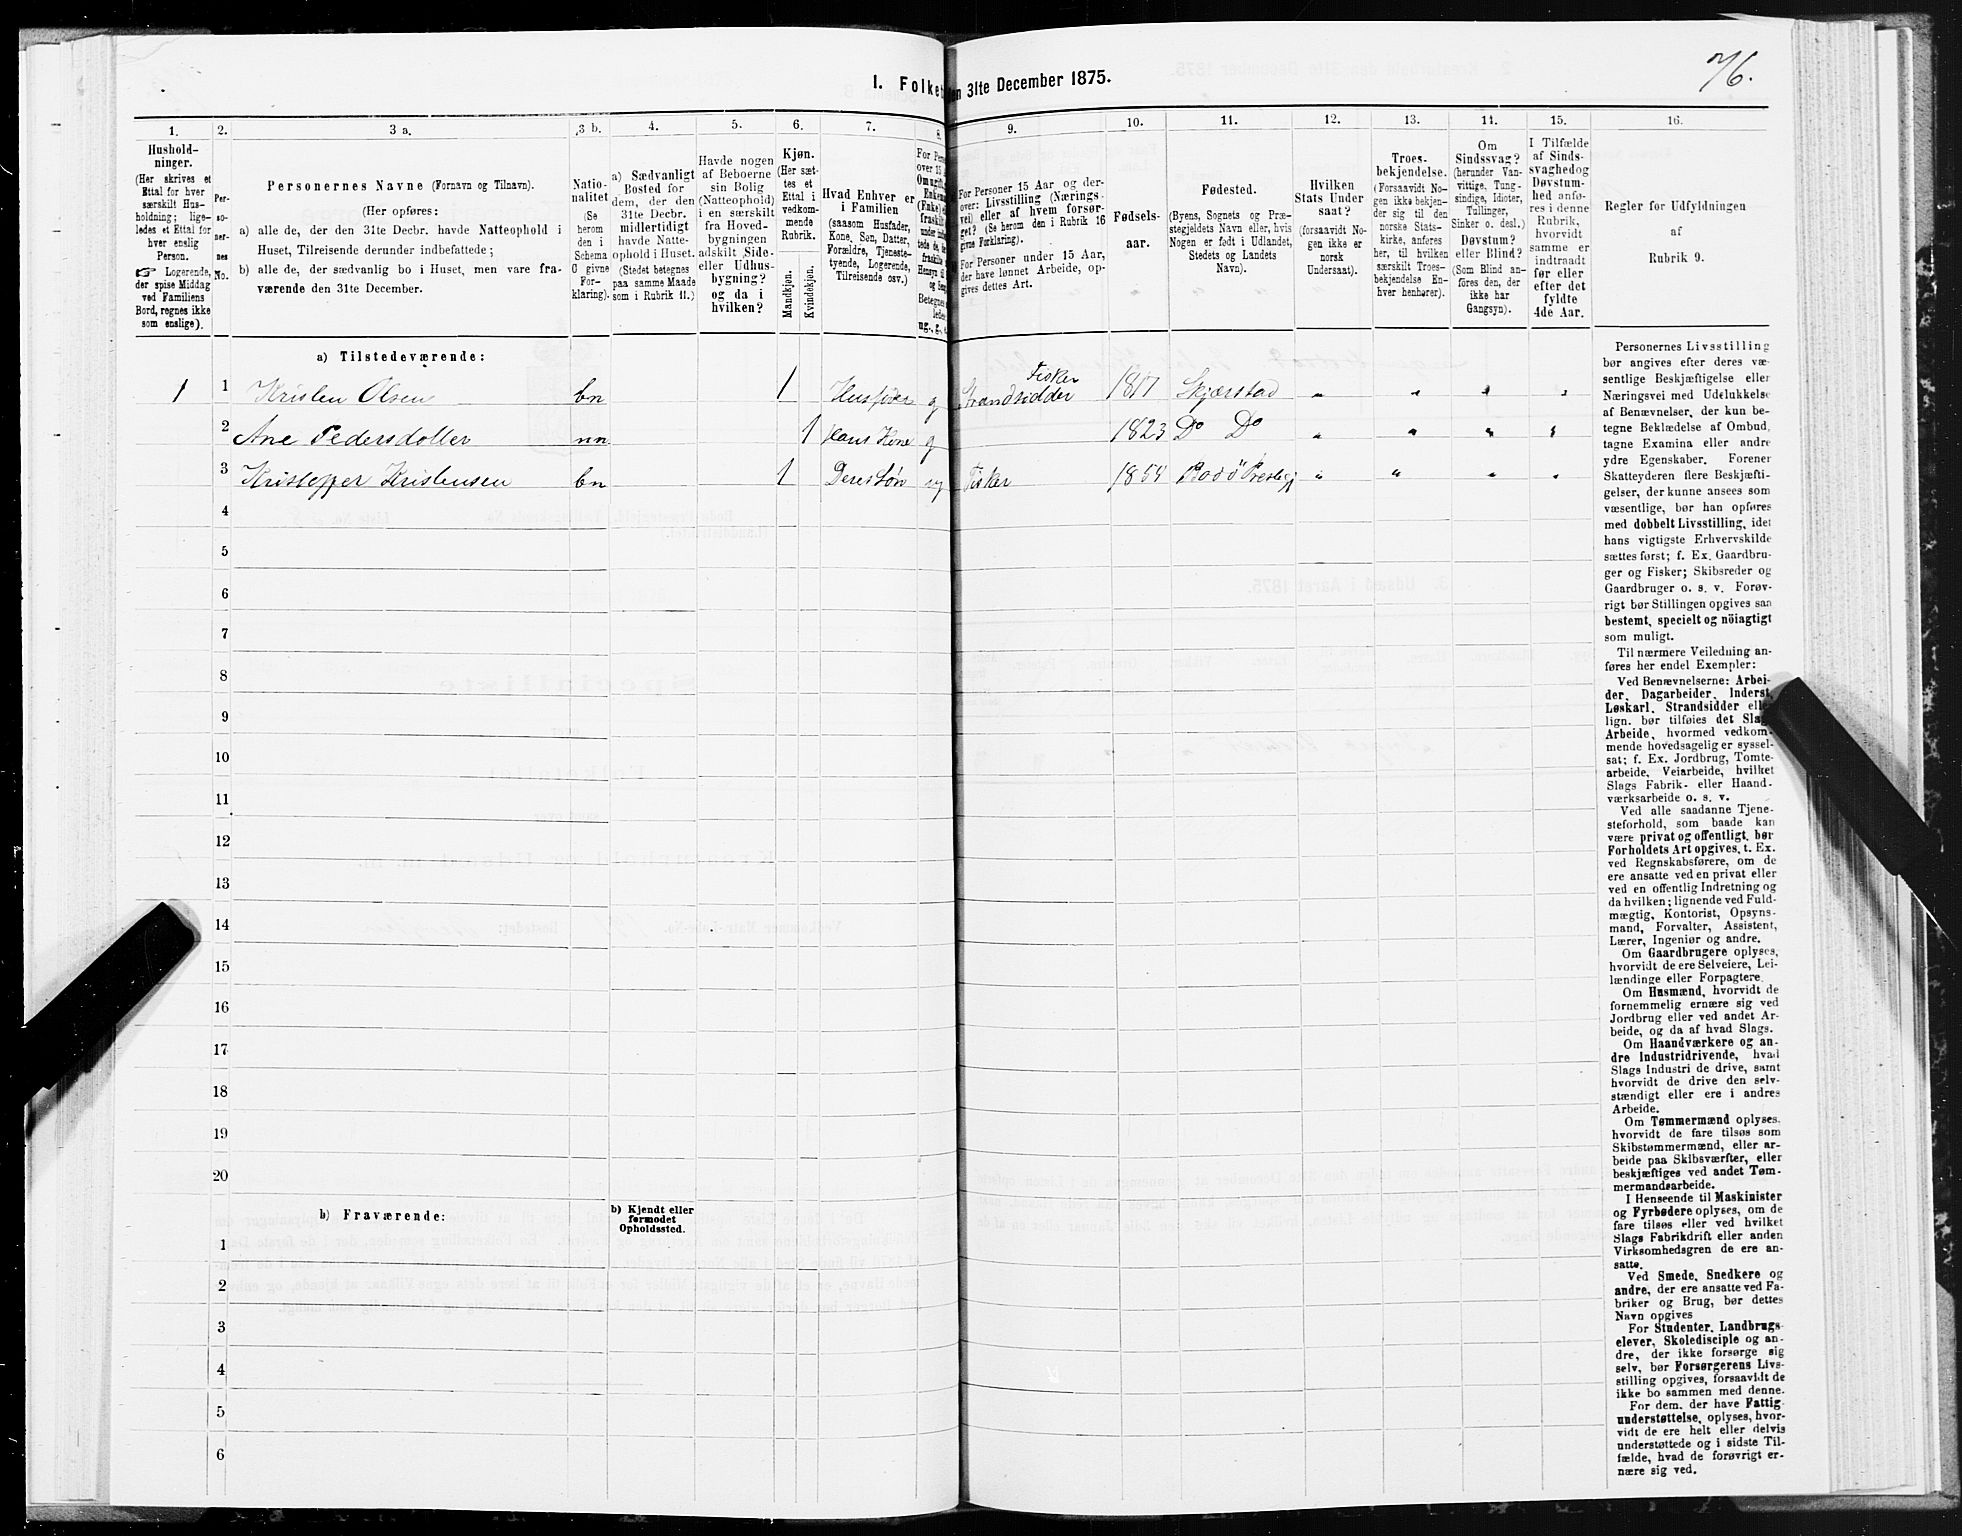 76.
I. Folket
en 31te December 1875.
1. 2. 3 a. 3 b. 4. 5. 6. 7. 8. 9. 10. 11. 12. 13. 14. 15. 16.
Hushold-
ninger.
(Her skrives et
Ettal for hver
særskilt Hus-
holdning; lige-
ledes et Ettal for
hver enslig
Person.
☞ Logerende,
der spise Middag
ved Familiens
Bord, regnes ikke
som enslige).
Per-
so-
ner-
nes
No.
Personernes Navne (Fornavn og Tilnavn).
(Her opføres:
a) alle de, der den 31te Decbr. havde Natteophold i
Huset, Tilreisende derunder indbefattede;
b) alle de, der sædvanlig bo i Huset, men vare fra-
værende den 31te December.
Natio-
nalitet
(Se
herom
den i
Schema
C givne
For-
klaring).
a) Sædvanligt
Bosted for
dem, der den
31te Decbr.
midlertidigt
havde Natte-
ophold i Huset.
(Stedet betegnes
paa samme Maade
som i Rubrik 11.)
Havde nogen
af Beboerne
sin Bolig
(Natteophold)
i en særskilt
fra Hoved-
bygningen
adskilt Side-
eller Udhus-
bygning?
og da i
hvilken?
Kjøn.
(Her sæt-
tes et
Ettal i
vedkom-
mende
Rubrik.
Mandkjøn.
Kvindekjøn.
Hvad Enhver er
i Familien
(saasom Husfader,
Kone, Søn, Datter,
Forældre, Tjeneste-
tyende, Logerende,
Tilreisende osv.)
For Personer 15 Aar og der-
over: Livsstilling (Nærings-
vei) eller af hvem forsør-
get? (Se herom den i Rubrik 16
givne Førklaring).
For Personer under 15 Aar,
der have lønnet Arbeide, op-
gives dettes Art.
Fødsels-
aar.
Fødested.
(Byens, Sognets og Præ-
stegjeldets Navn eller, hvis
Nogen er født i Udlandet,
Stedets og Landets
Navn).
Hvilken
Stats Under
saat?
(forsaavidt No-
gen ikke er
norsk
Undersaat).
Troes-
bekjendelse.
(Forsaavidt No-
gen ikke bekjen-
der sig til den
norske Stats-
kirke, anføres
her, til hvilken
særskilt Troes-
bekjendelse En-
hver henhører).
Om
Sindssvag?
(herunder Van-
vittige, Tung-
sindige, Idioter,
Tullinger,
Sinker o. desl.)
Døvstum?
eller Blind?
(Som Blind an-
føres den, der
ikke har
Gangsyn).
I Tilfælde
af Sinds-
svaghedog
Døvstum-
hed anfø-
res i denne
Rubrik,
hvorvidt
samme er
indtraadt
før eller
efter det
fyldte
4de Aar.
Regler for Udfyldningen
af
Rubrik 9.
a) Tilstedeværende:
1 1 Kristen Olsen bn 1 Husfader g Fisker
Strandsidder 1817 Skjærstad " " " "
2 Ane Pedersdatter nn 1 Hans Kone g 1823 Do Do " " " "
3 Kristoffer Kristensen bn 1 Deres Søn ug Fisker 1854 Bodö Prestgj " " " "
4
5
6
7
8
9
10
11
12
13
14
15
16
17
18
19
20
b) Fraværende:
b) Kjendt eller
formodet
Opholdssted.
1
2
3
4
5
6
Personernes Livsstilling
bør angives efter deres væ-
sentlige Beskjæftigelse eller
Næringsvei med Udelukkelse
af Benævnelser, der kun be-
tegne Beklædelse af Ombud,
tagne Examina eller andre
ydre Egenskaber. Forener
Skatteyderen flere Beskjæfti-
gelser, der kunne ansees som
væsentlige, bør han opføres
med dobbelt Livsstilling, idet
hans vigtigste Erhvervskilde
sættes først; f. Ex. Gaardbru-
ger og Fisker; Skibsreder og
Gaardbruger o. s. v. Forøv-
rigt bør Stillingen opgives saa
bestemt, specielt og nöiagtigt
som muligt.
Til nærmere Veiledning an-
føres her endel Exempler:
Ved Benævnelserne: Arbei-
der, Dagarbeider, Inderst,
Løskarl, Strandsidder elle
lign. bør tilføies det Slag
Arbeide, hvormed vedkom-
mende hovedsagelig er syssel-
sat; f. Ex. Jordbrug, Tomte-
arbeide, Veiarbeide, hvilket
Slags Fabrik- eller Haand-
værksarbeide o. s. v.
Ved alle saadanne Tjene-
steforhold, som baade kan
være privat og offentligt, bør
Forholdets Art opgives, t. Ex.
ved Regnskabsførere, om de
ere ansatte ved en privat eller
ved en offentlig Indretning og
da hvilken; lignende ved Fuld-
mægtig, Kontorist, Opsyns-
mand, Forvalter, Assistent,
Lærer, Ingeniør og andre.
Om Gaardbrugere oplyses,
hvorvidt de ere Selveiere, Lei-
lændinge eller Forpagtere.
Om Husmænd, hvorvidt de
fornemmelig ernære sig ved
Jordbrug eller ved andet Ar-
beide, og da af hvad Slags.
Om Haandværkere og an-
dre Industridrivende, hvad
Slags Industri de drive, samt
hvorvidt de drive den selv-
stændigt eller ere i andres
Arbeide.
Om Tømmermænd oplyses,
hvorvidt de fare tilsøs som
Skibstømmermænd, eller ar-
beide paa Skibsværfter, eller
beskjæftiges ved andet Tøm-
mermandsarbeide.
I Henseende til Maskinister
og Fyrbødere oplyses, om de
fare tilsøs eller ved hvilket
Slags Fabrikdrift eller anden
Virksomhedsgren de ere an-
satte.
Ved Smede, Snedkere og
andre, der ere ansatte ved Fa-
briker og Brug, bør dettes
Navn opgives
For Studenter, Landbrugs-
elever, Skoledisciple og an-
dre, der ikke forsørge sig
selv, bør Forsørgerens Livs-
stilling opgives, forsaavidt de
ikke bo sammen med denne.
For dem, der have Fattig-
understøttelse, oplyses, hvor-
vidt de ere helt eller delvis
understøttede og i sidste Til-
fælde, hvad de forøvrigt er-
nære sig ved.